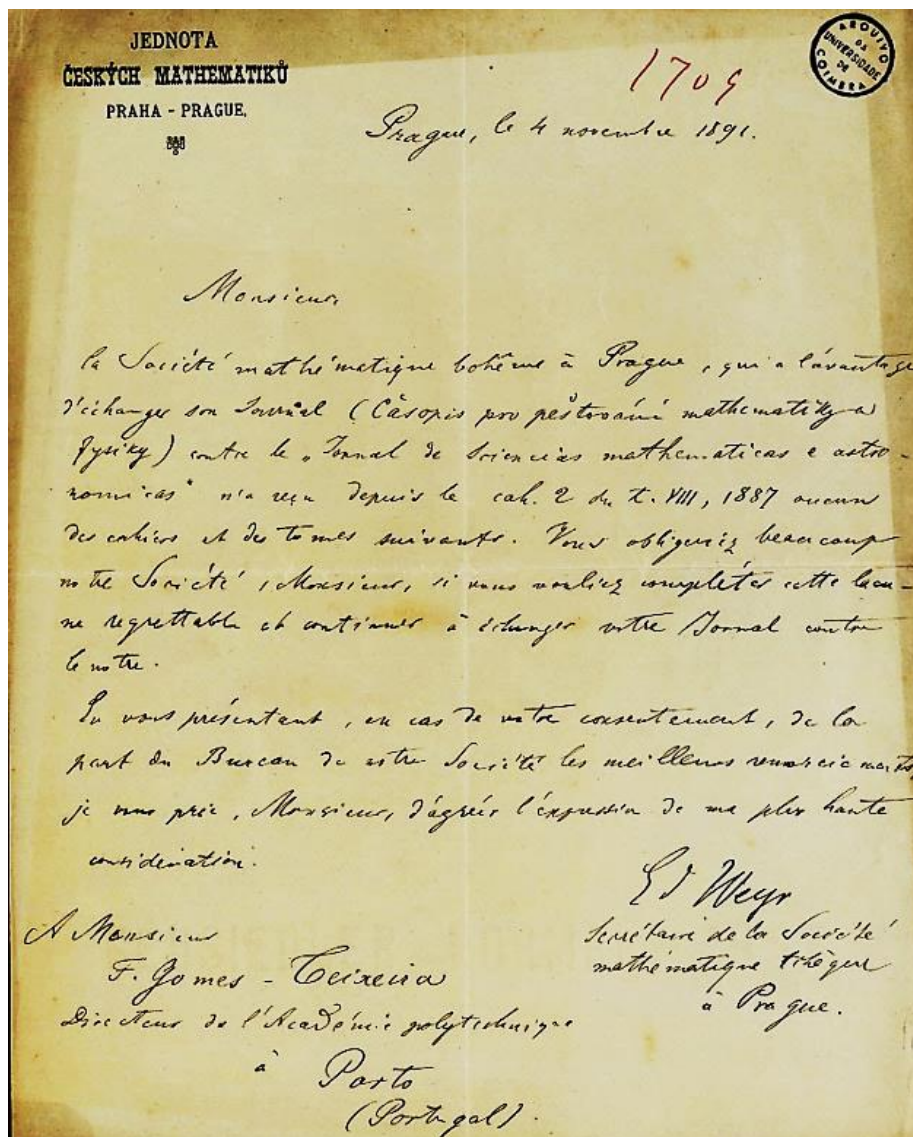 JEDNOTA
ČESKÝCH MATHEMATIKŮ
PRAHA - PRAGUE.
ARQUIVO DA UNIVERSIDADE DE COIMBRA
1709
Prague, le 4 novembre 1891.
Monsieur
la Société mathématique bohême à Prague, qui a l'avantage
d'échanger son Journal (Časopis pro pěstování mathematiky a
fysiky) contre le „Jornal de Sciencias mathematicas e astro-
nomicas" n'a reçu depuis le cah. 2 du t. VIII, 1887 aucun
des cahiers et des tomes suivants. Vous obligeriez beaucoup
notre Société, Monsieur, si vous vouliez compléter cette lacu-
ne regrettable et continuer à échanger votre Jornal contre
le notre.
En vous présentant, en cas de votre consentement, de la
part du Bureau de notre Société les meilleurs remerciements,
je vous prie, Monsieur, d'agréer l'expression de ma plus haute
considération.
Ed Weyr
Secrétaire de la Société
mathématique tchèque
à Prague.
A Monsieur
F. Gomes-Teixeira
Directeur de l'Académie polytechnique
à
Porto
(Portugal).